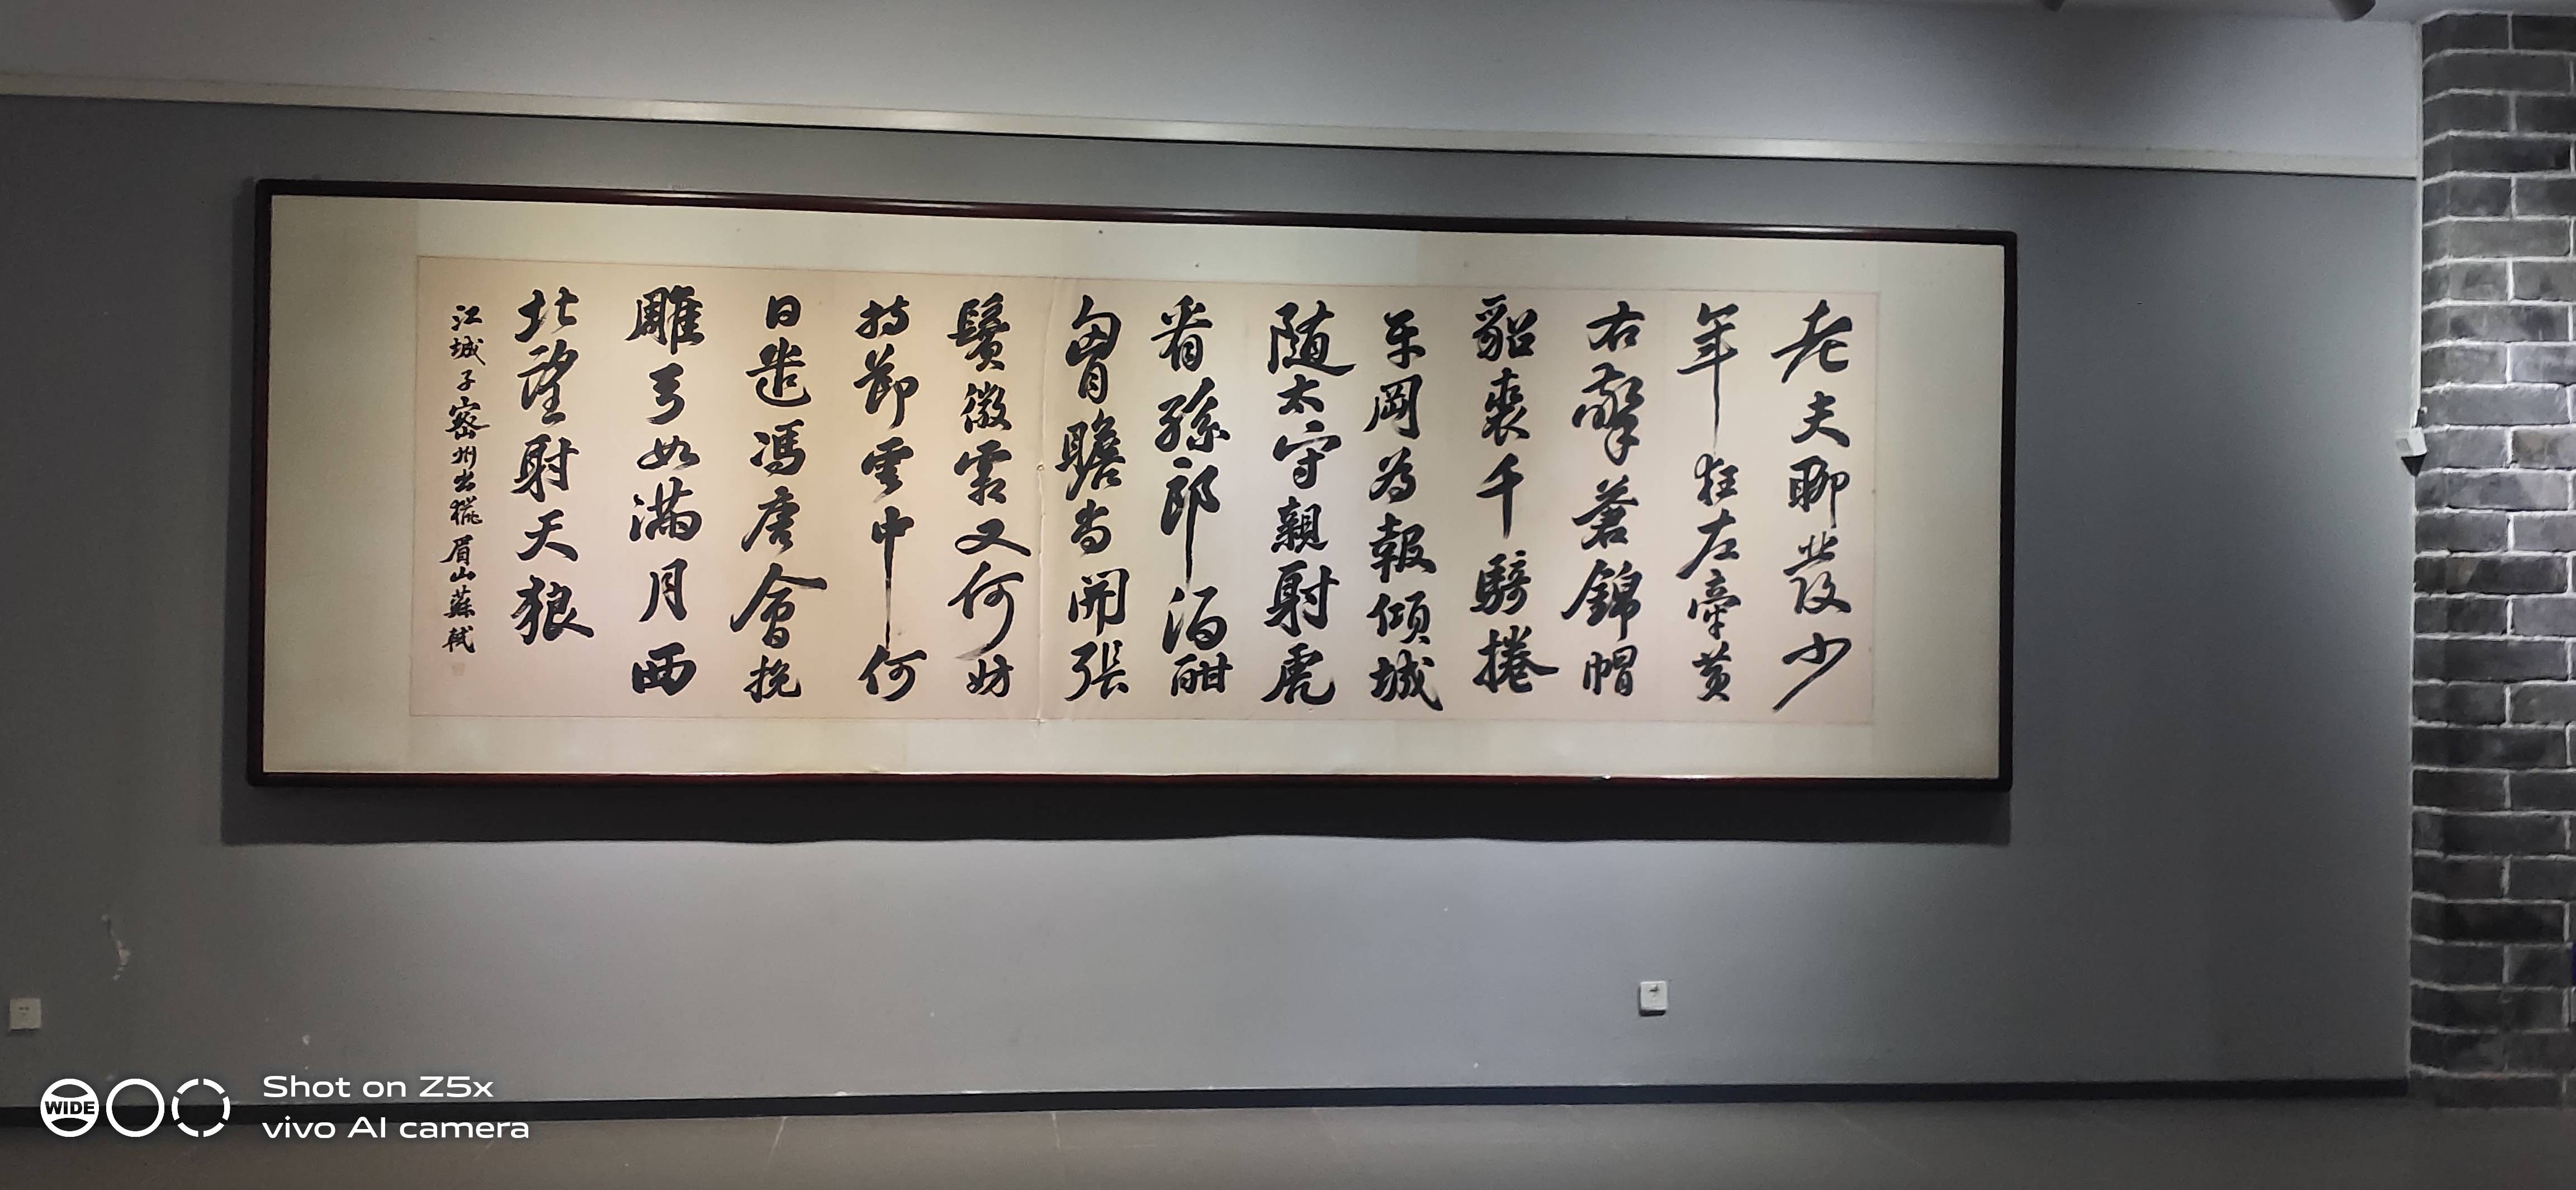 老夫聊發少
年狂左牽黃
右擎蒼錦帽
貂裘千騎捲
平岡為報傾城
隨太守親射虎
看孫郎酒酣
匈胷膽尚開張
鬢微霜又何妨
持節雲中何
日遣馮唐會挽
雕弓如滿月西
北望射天狼
江城子密州出獵 眉山蘇軾
WIDE
Shot on Z5x
vivo AI camera